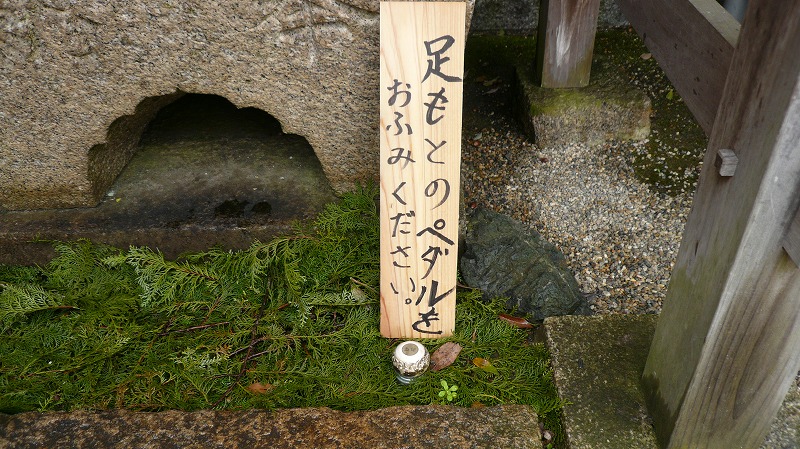 足もとのペダルを
おふみください。